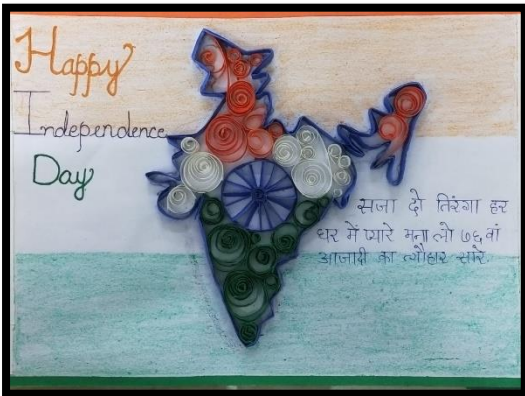 Happy
Independence
Day
सजा दो तिरंगा हर
घर में प्यारे मना लो ७६ वां
आजादी का त्यौहार सारे